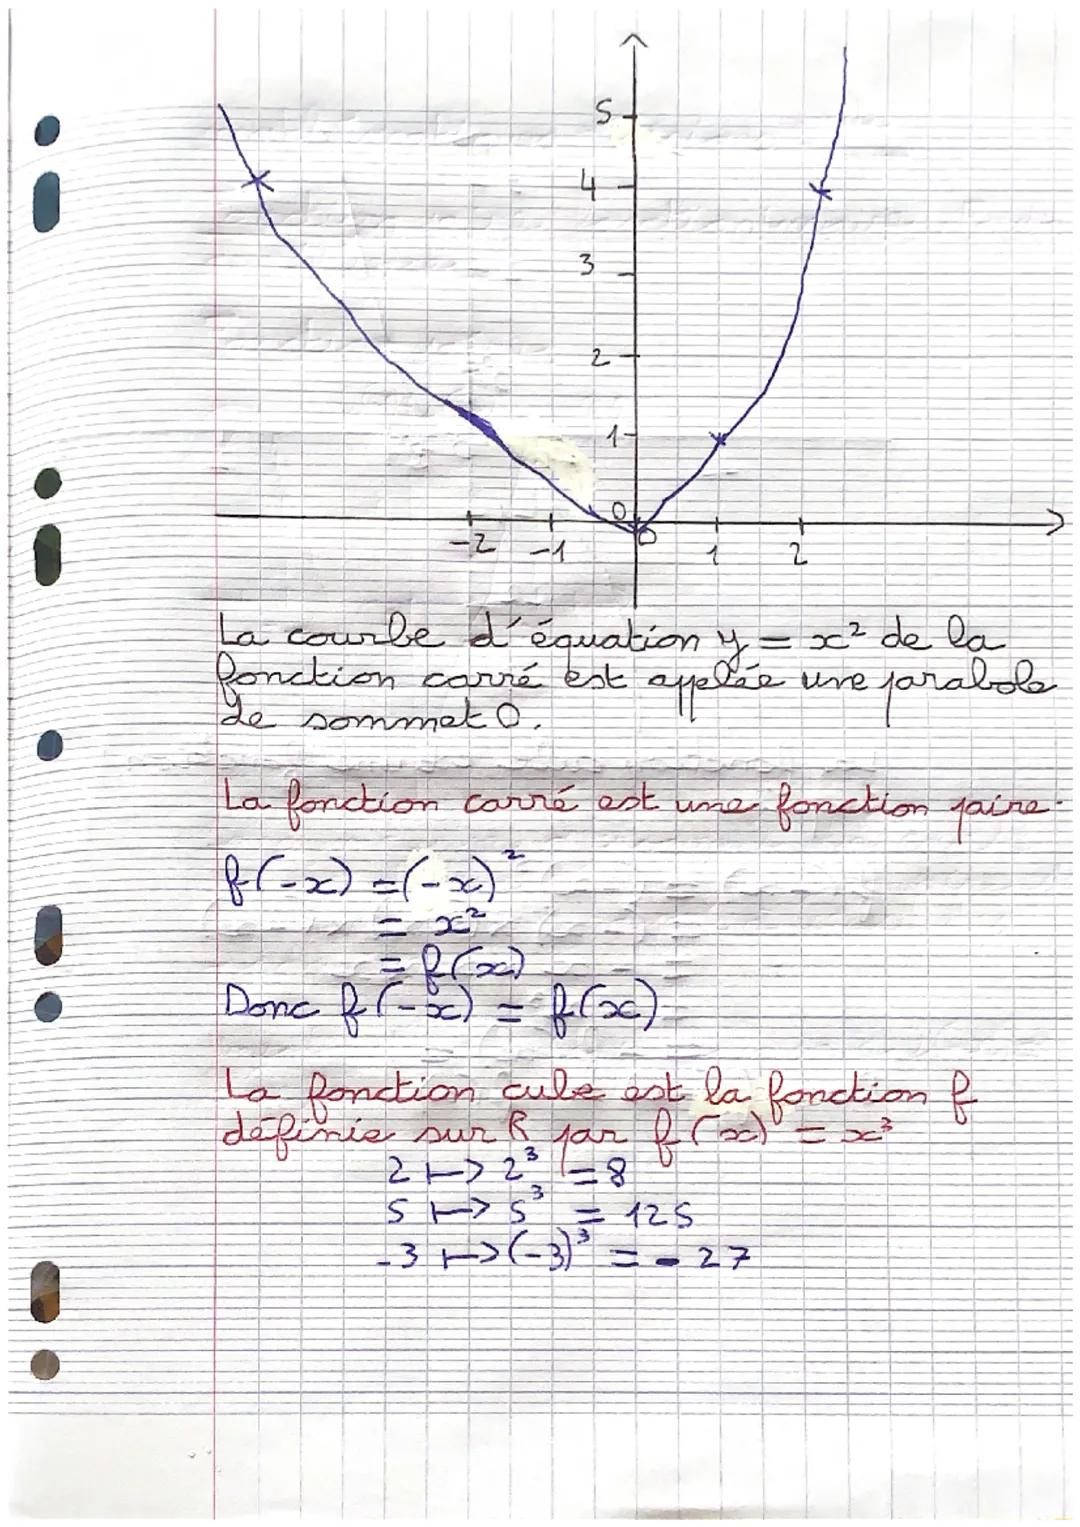 5
4
3
2
1
0
-2 -1 0 1 2
La courbe d'équation y = x² de la
fonction carré est appelée une parabole
de sommet O.
La fonction carré est une fonction paire.
f(-x) = (-x)²
= x²
= f(x)
Donc f(-x) = f(x)
La fonction cube est la fonction f
définie sur R par f(x) = x³
2 ↦ 2³ = 8
5 ↦ 5³ = 125
-3 ↦ (-3)³ = -27